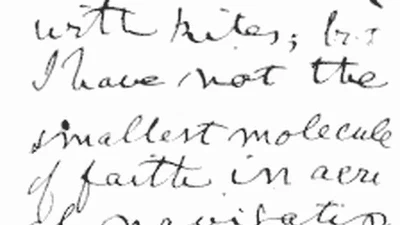 with kites; but
I have not the
smallest molecule
of faith in aeri
al navigation